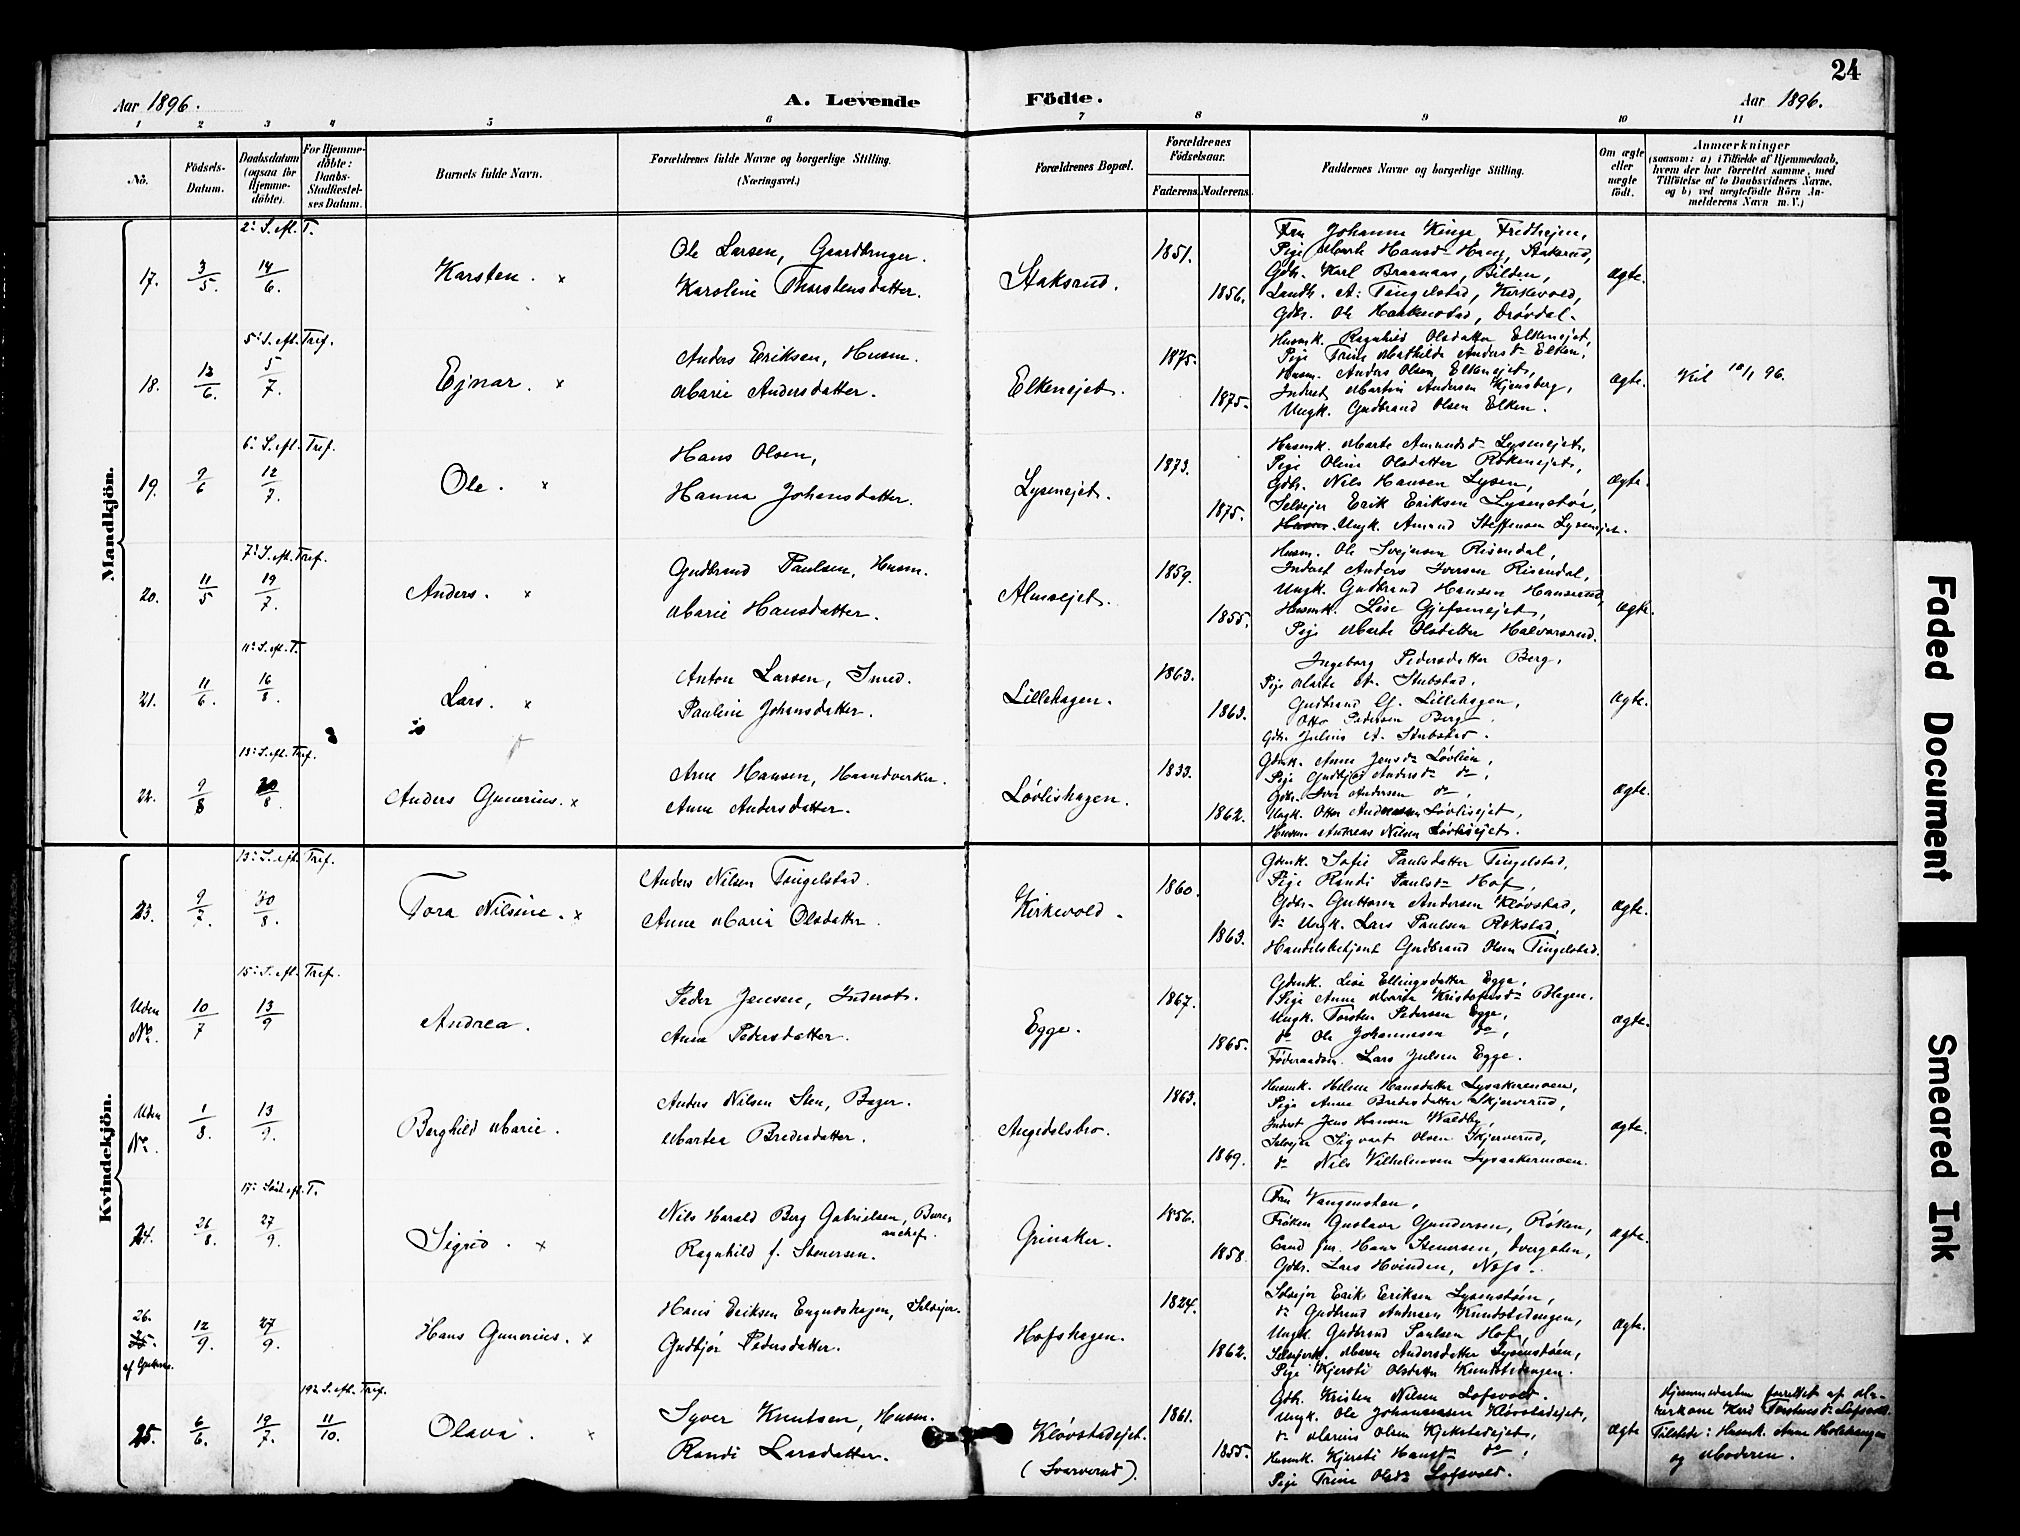 24
Aar 1896.
A. Levende Födte.
Aar 1896.
1 2 3 4 5 6 7 8 9 10 11
No.
Födsels-Datum.
Daabsdatum (ogsaa for Hjemme-döbte).
For Hjemme-döbte: Daabs-Stadfæstel-ses Datum.
Barnets fulde Navn.
Forældrenes fulde Navne og borgerlige Stilling.
(Næringsvei.)
Forældrenes Bopæl.
Forældrenes Födselsaar.
Faderens. Moderens.
Faddernes Navne og borgerlige Stilling.
Om ægte eller uægte födt.
Anmærkninger
(saasom: a) i Tilfælde af Hjemmedaab, hvem der har forrettet samme, med Tilföielse af to Daabsvidners Navne, og b) ved uægtefödte Börn An-melderens Navn m. V.)
Mandkjön.
2. S. efl. T.
17. 3/5. 14/6. Karsten. x
Ole Larsen, Gaardbruger.
Karoline Thorstensdatter.
Staksrud.
1851.
1856.
Fru Johanna Kinge Fredhejm,
Pige Marte Hansd. Haug, Staksrud,
Gdbr. Karl Braanaas, Bilden,
Landh. A. Tingelstad, Kirkevold,
Gdbr. Ole Haakenstad, Drövdal.
ægte.
5. S. efl. Tref.
18. 12/6. 5/7. Ejnar. x
Anders Eriksen, Husm.
Marie Andersdatter.
Elkenejet.
1875.
1875.
Husmk. Ragnhild Olsdatter Elkenejet,
Pige Trine Mathilde Andersd. Elken,
Husm. Anders Olsen Elkenejet,
Inderst Martin Andersen Kjensberg,
Ungk. Gudbrand Olsen Elken.
ægte.
6. S. efl. Tref.
19. 9/6 12/7. Ole. x
Hans Olsen,
Hanna Johansdatter.
Lysenejet.
1873.
1875.
Husmk. Marte Amundsd. Lysenejet,
Pige Oline Olsdatter Rökenejet,
Gdbr. Nils Hansen Lysen,
Selvejer Erik Eriksen Lysenstöa,
Ungk. Amund Steffensen Lysenejet.
ægte.
7. S. efl. Tref.
20. 11/5 19/7. Anders. x
Gudbrand Paulsen, Husm.
Marie Hansdatter.
Almsejet.
1859.
1855.
Husm. Ole Svejnsen Risendal,
Inderst Anders Iversen Risendal,
Ungk. Gudbrand Hansen Hanserud,
Husmk. Lise Gjefsenejet,
Pige Marte Olsdatter Halvorsrud.
ægte.
11. S. efl. T.
21. 11/6. 16/8. Lars. x
Anton Larsen, Smed.
Pauline Johansdatter.
Lillehagen.
1863.
1863.
Ingeborg Pedersdatter Berg,
Pige Marte A. Stubstad,
Gudbrand G. Lillehagen,
Otto Pedersen Berg,
Gdbr. Julius A. Stubstad.
ægte.
13. S. efl. Tref.
22. 9/8 30/8. Anders Gunerius. x
Arne Hansen, Haandverker.
Anne Andersdatter.
Lövlishagen.
1833.
1862.
Gdmk. Anne Jensd. Lövlien,
Pige Gudbjör Andersd. do,
Gdbr. Iver Andersen do,
Ungk. Otter Andersen Lövlisejet,
Husm. Andreas Nilsen Lövlisejet.
ægte.
Kvindekjön.
13. S. efl. Tref.
23. 9/7. 30/8. Tora Nilsine. x
Anders Nilsen Tingelstad.
Anne Marie Olsdatter.
Kirkevold.
1860.
1863.
Gdmk. Sofie Paulsdatter Tingelstad,
Pige Randi Paulsd. Hof,
Gdbr. Guttorm Andersen Klövstad,
Ungk. Lars Paulsen Rökstad,
Handelsbetjent Gudbrand Olsen Tingelstad.
ægte.
15. S. efl. Tref.
Uden No. 10/7 13/9 Andrea.
Peder Jensen, Inderst.
Anne Pedersdatter.
Egge.
1867.
1865.
Gdmk. Lise Ellingsdatter Egge,
Pige Anne Marie Kristofersd. Blegen,
Ungk. Torsten Pedersen Egge,
do Ole Johannesen do,
Föderaadsm. Lars Julsen Egge.
ægte.
Uden No. 1/8. 13/9. Berghild Marie.
Anders Nilsen Sten, Bager.
Martea Bredesdatter.
Augedalsbro.
1863.
1869.
Husmk. Helene Hansdatter Lysakermoen,
Pige Anna Bredesdatter Skjerverud,
Inderst Jens Hansen Waldby,
Selvejer Sigvart Olsen Skjerverud,
do Nils Vilhelmsen Lysakermoen.
ægte.
17. Sönd. efl. T.
24. 26/8. 27/9. Sigrid. x
Nils Harald Berg Gabrielsen, Bureauchef.
Ragnhild f. Stenersen.
Grinaker.
1856.
1858.
Fru Vangensten,
Fröken Gustava Gundersen, Röken,
Cand. jur. Hans Stenersen, Dvergsten,
Gdbr. Lars Hvinden, Næs.
ægte.
26. 12/9. 27/9. Hans Gunerius. x
Hans Eriksen Engnæshagen, Selvejer.
Gudbjör Pedersdatter.
Hofshagen.
1824.
1862.
Selvejer Erik Eriksen Lysenstöen,
do Gudbrand Andersen Kundstadengen,
Ungk. Gudbrand Paulsen Hof,
Selvejerk. Maren Andersdatter Lysenstöen,
Pige Kjersti Olsdatter Kundstadengen.
ægte.
19. S. efl. Tref.
25. 6/6. 19/7. 11/10. Olava. x
Syver Knutsen, Husm.
Randi Larsdatter.
Klövstadejet.
(Svarverud).
1861.
1855.
Gdbr. Kristen Nilsen Lofsvold.
Ungk. Ole Johannesen Klövstadejet,
do Marius Olsen Kjekstadejet,
Husmk. Kjersti Hansd. do,
Pige Trine Olsd. Lofsvold.
ægte
Hjemmedaaben forrettet af
Kari Torstensd. Lofsvold.
Tilstede: Husmk. Anne
og Moderen.
Faded Document
Smeared Ink